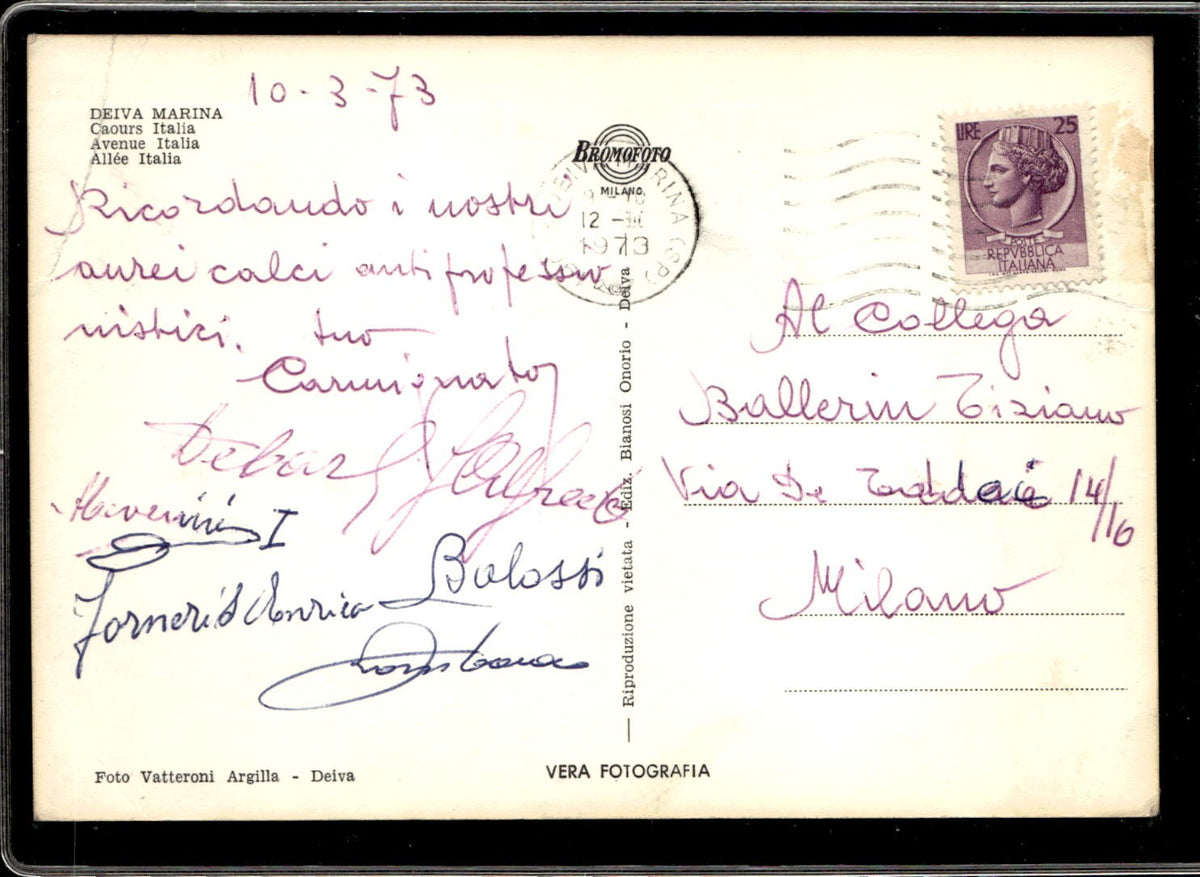 10-3-73
DEIVA MARINA
Caours Italia
Avenue Italia
Allée Italia
Ricordando i nostri
aurei calci antiprofessio
nistici. tuo
Carmignato
Alfredo
I
Forneris Enrica
Balossi
Foto Vatteroni Argilla - Deiva
BROMOFOTO
MILANO
12 - III
1973
MARINA (SP)
— Riproduzione vietata - Ediz. Bianosi Onorio - Deiva
VERA FOTOGRAFIA
LIRE 25
POSTE
REPVBBLICA
ITALIANA
Al Collega
Ballerin Tiziano
Via De Taddei 14/16
Milano